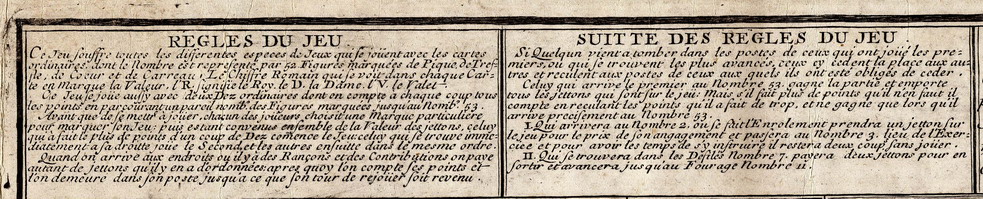 REGLES DU JEU
Ce Jeu souffre toutes les differentes especes de Jeux qui se joüent avec les cartes
ordinaires, dont le Nombre est representé par 52 Figures marquées de Pique, de Tref-
fle, de Coeur et de Carreau; Le Chiffre Romain qui se voit dans chaque Car-
te en Marque la Valeur. l'R. signifie le Roy. le D. la Dame. l'V. le Valet.
Ce Jeu se joüe aussy avec deux Dez ordinaires dont en compte a chaque coup tous
les points en parcourant un pareil nomb. des Figures marquées jusqu'au Nomb. 53.
Avant que de se mettre a joüer, chacun des joueurs choisit une Marque particuliere
pour marquer son Jeu; puis estant convenus ensemble de la Valeur des jettons, celuy
qui fait le plus de points d'un coup de Dez comence le jeu; celuy qui se trouve imme-
diatement a sa droitte joüe le Second, et les autres ensuitte dans le mesme ordre.
Quand on arrive aux endroits ou il y a des Rançons et des Contributions on paye
autant de jettons qu'il y en a d'ordonnées, apres quoy l'on compte ses points et
l'on demeure dans son poste jusqu'a ce que son tour de rejoüer soit revenu.
SUITTE DES REGLES DU JEU
Si Quelqun vient a tomber dans les postes de ceux qui ont joüé les pre-
miers, ou qui se trouvent les plus avancés, ceux cy cedent la place aux au-
tres et reculent aux postes de ceux aux quels ils ont esté obligés de ceder.
Celuy qui arrive le premier au Nombre 53. gagne la partie et emporte
tous les jettons qui sont sur le jeu. Mais s'il fait plus de points qu'il n'en faut il
compte en reculant les points qu'il a fait de trop, et ne gagne que lors qu'il
arrive precisement au Nombre 53.
I. Qui arrivera au Nombre 2. ou se fait l'Enrolement prendra un jetton sur
le jeu pour le prix de son angagement et passera au Nombre 3. lieu de l'Exer-
cice et pour avoir les temps de s'y instruire il restera deux coup sans joüer.
II. Qui se trouvera dans les Defilés Nombre 7. payera deux jettons pour en
sortir et avancera jusqu'au Fourage Nombre 11.